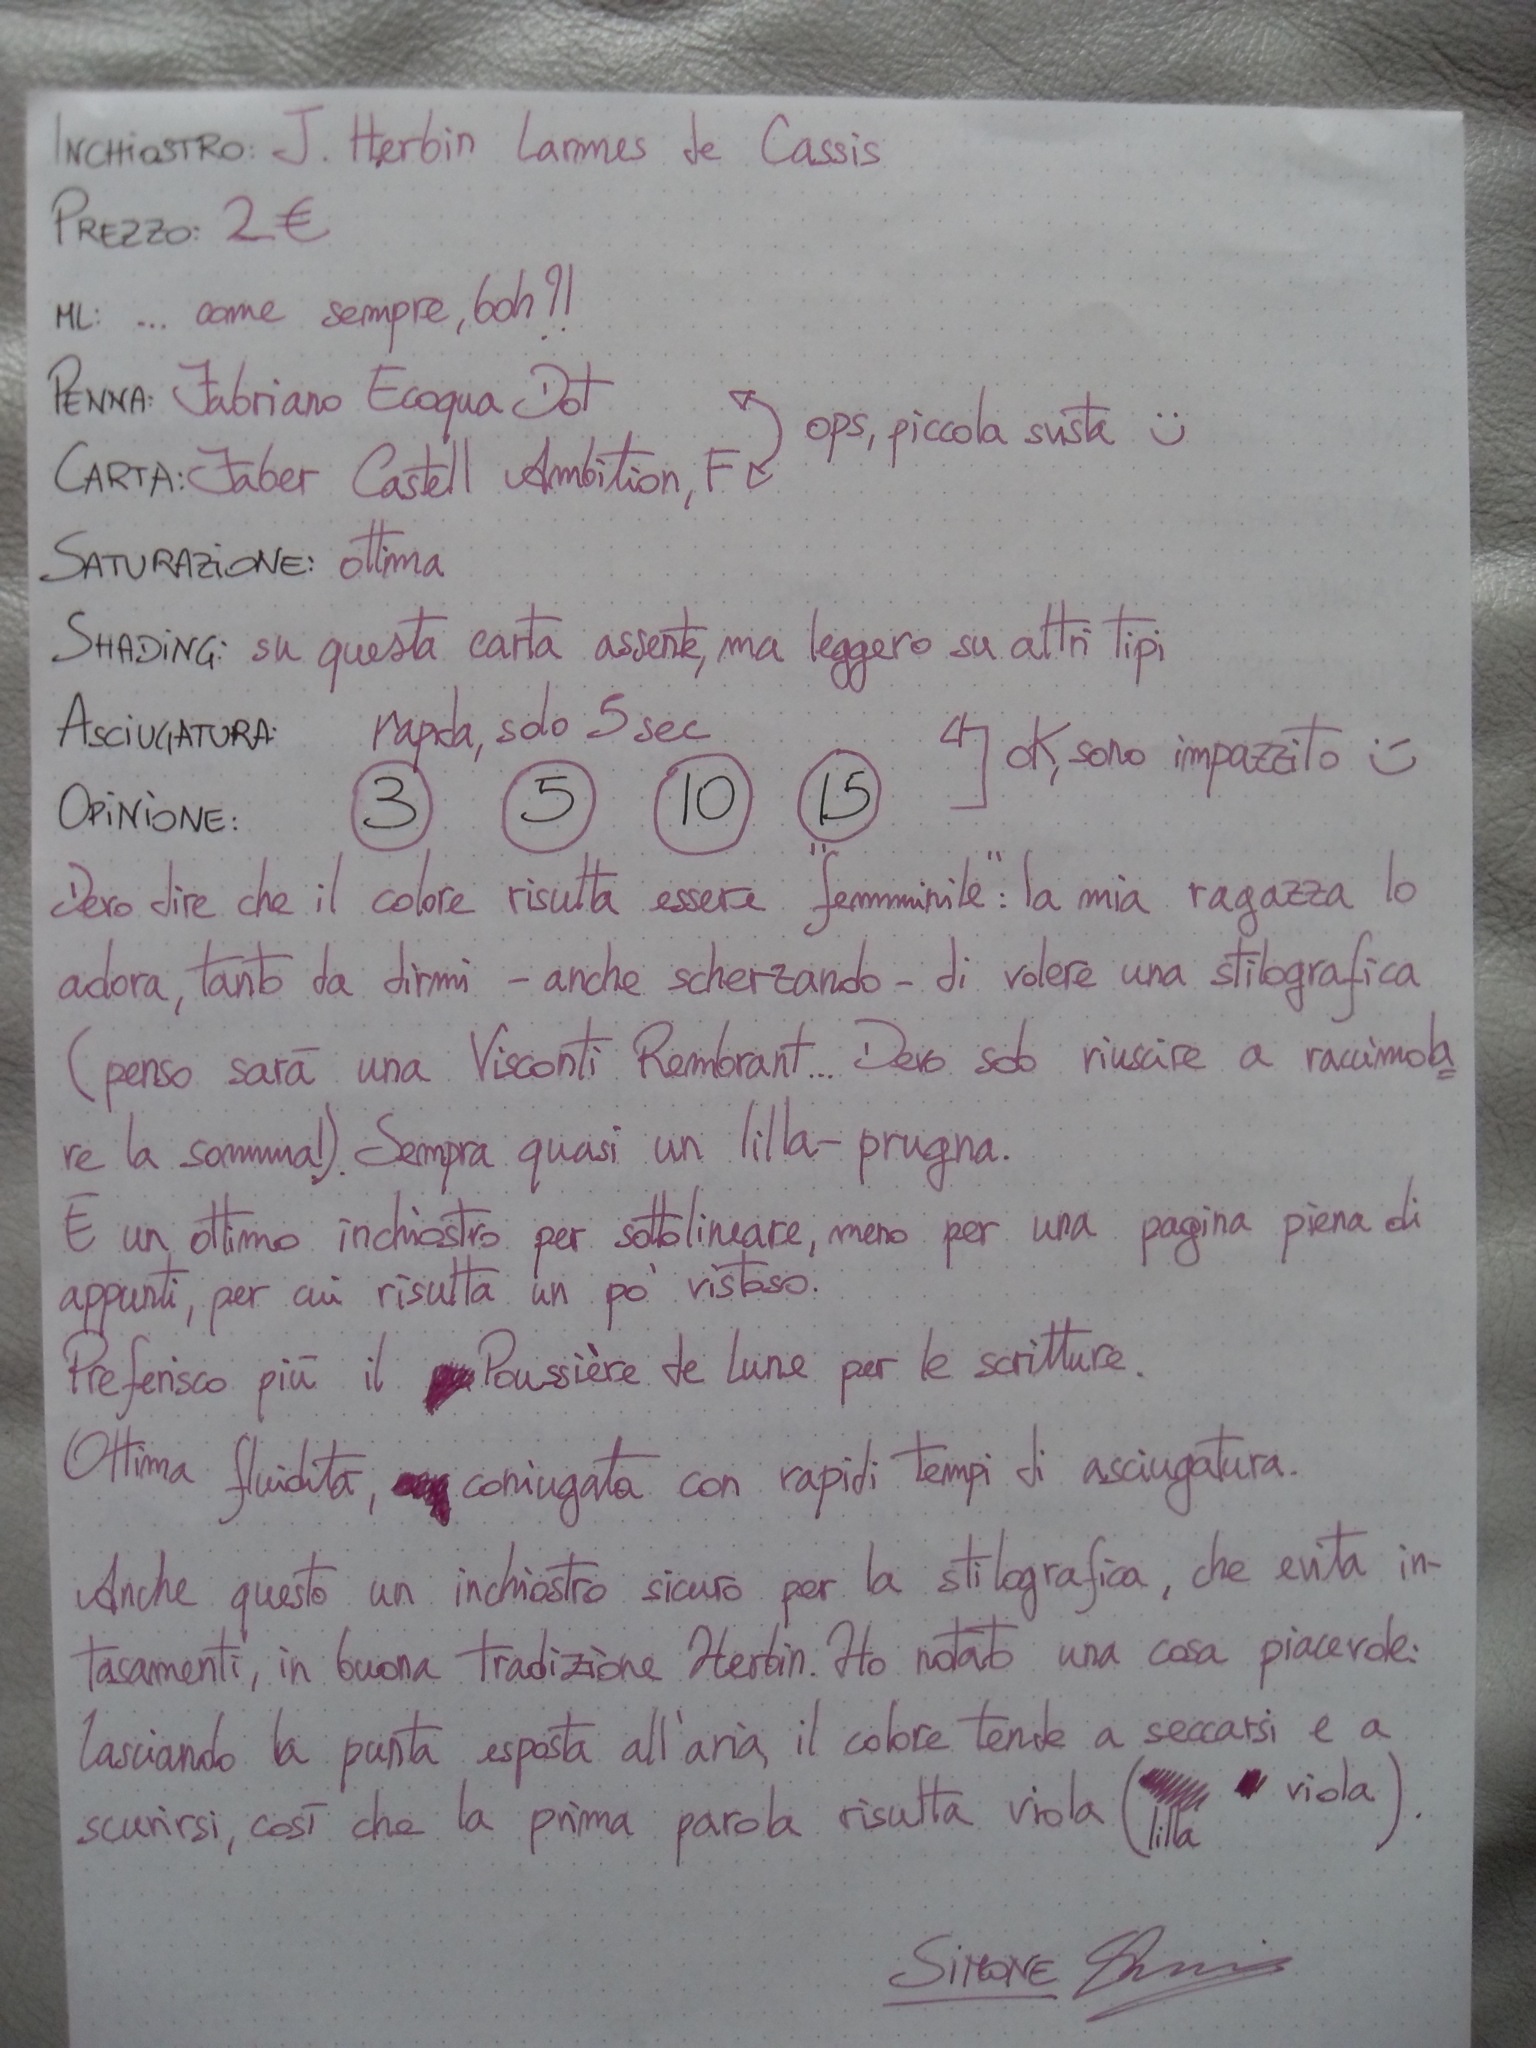 INCHIOSTRO: J. Herbin Larmes de Cassis
PREZZO: 2€
ML: ... come sempre, boh?!
PENNA: Fabriano Ecoqua Dot
ops, piccola svista :)
CARTA: Faber Castell Ambition, F
SATURAZIONE: ottima
SHADING: su questa carta assente, ma leggero su altri tipi
ASCIUGATURA: rapida, solo 5 sec
OK, sono impazzito :)
OPINIONE: 3 5 10 15
Devo dire che il colore risulta essere "femminile": la mia ragazza lo
adora, tanto da dirmi - anche scherzando - di volere una stilografica
(penso sarà una Visconti Rembrant... Devo solo riuscire a raccimola=
re la somma!). Sempra quasi un lilla-prugna.
È un ottimo inchiostro per sottolineare, meno per una pagina piena di
appunti, per cui risulta un po' vistoso.
Preferisco più il Poussière de Lune per le scritture.
Ottima fluidità, coniugata con rapidi tempi di asciugatura.
Anche questo un inchiostro sicuro per la stilografica, che evita in-
tasamenti, in buona tradizione Herbin. Ho notato una cosa piacevole:
lasciando la punta esposta all'aria, il colore tende a seccarsi e a
scurirsi, così che la prima parola risulta viola (lilla viola).
SIMONE